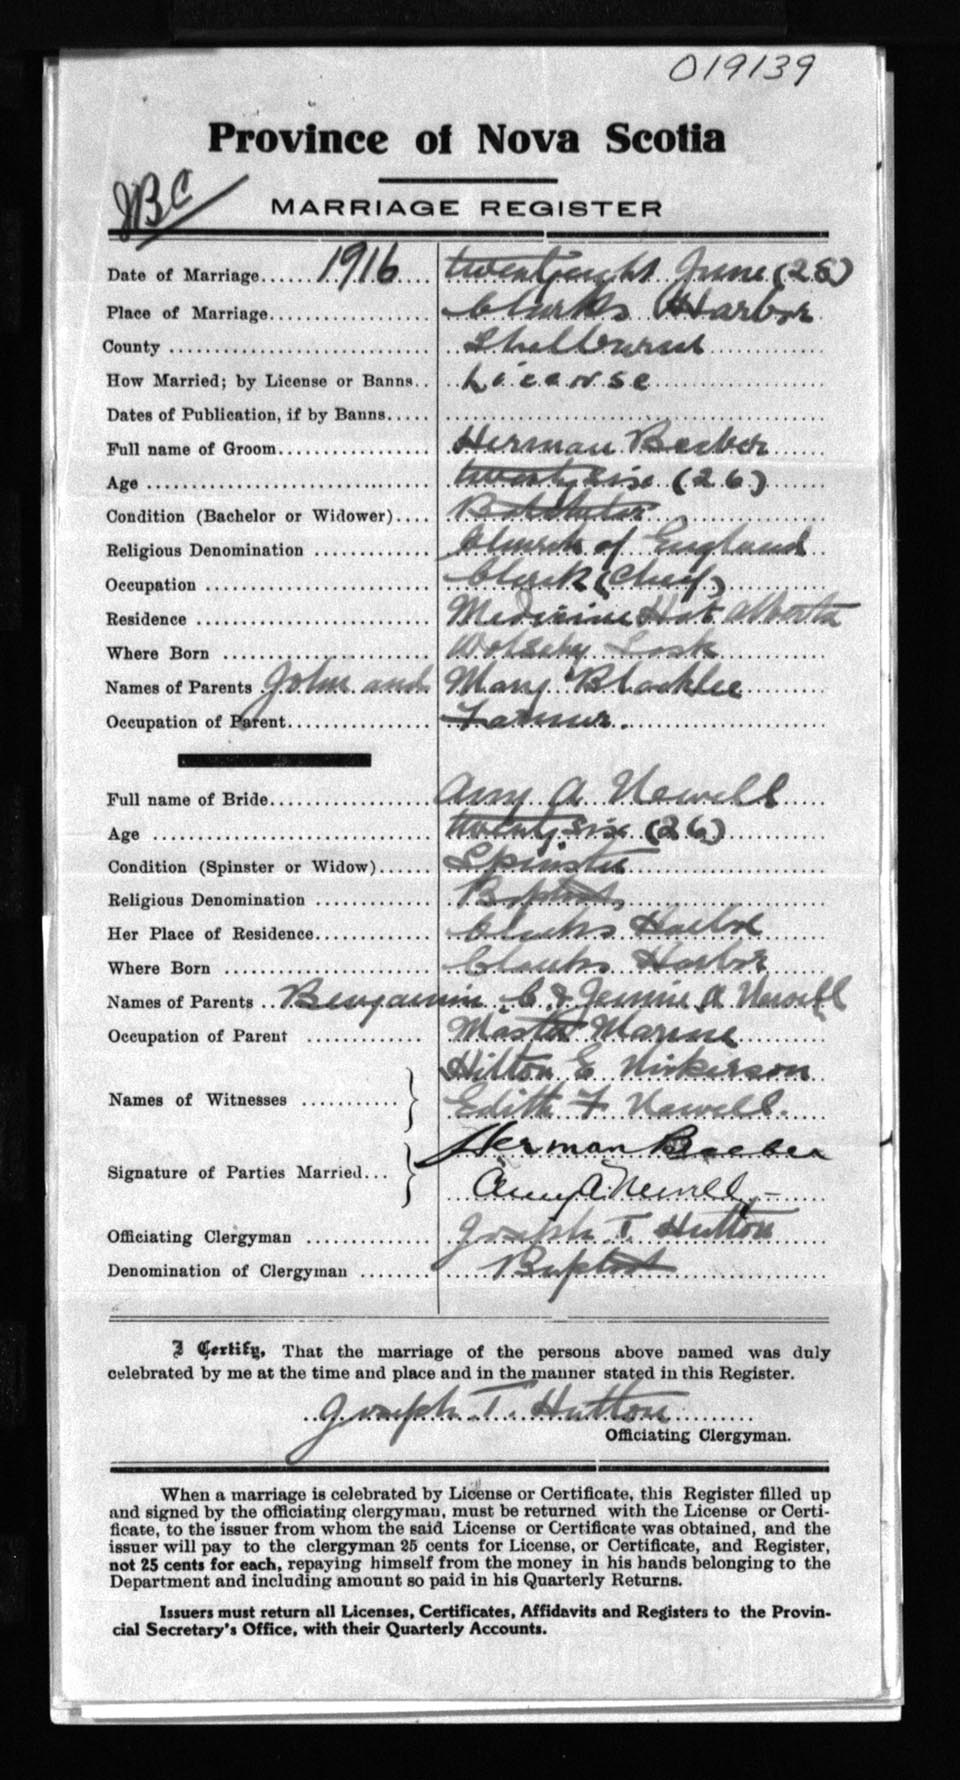 019139
Province of Nova Scotia
JBC
MARRIAGE REGISTER
Date of Marriage...... 1916 .... twentyeight June (28)
Place of Marriage................. Clarks Harbor
County ............................ Shelburne
How Married; by License or Banns.. License
Dates of Publication, if by Banns.....
Full name of Groom................ Herman Beeber
Age .............................. twenty six (26)
Condition (Bachelor or Widower).... Batchelor
Religious Denomination ............ Church of England
Occupation ........................ Clerk (Chief)
Residence ......................... Medicine Hat Alberta
Where Born ...................... Sask
Names of Parents .John and. Mary Blacklee
Occupation of Parent............... Farmer.
Full name of Bride................. Amy A Newell
Age .............................. twenty six (26)
Condition (Spinster or Widow)...... Spinster
Religious Denomination ............ Baptist
Her Place of Residence............. Clarks Harbor
Where Born ...................... Clarks Harbor
Names of Parents .. Benjamin C. & Jennie A Newell
Occupation of Parent ............ Master Marine
Hilton E Nickerson
Names of Witnesses ...........
Edith F Newell.
Herman Beeber
Signature of Parties Married...
Amy A. Newell
Officiating Clergyman ............ Joseph T. Hutton
Denomination of Clergyman ........ Baptist
I Certify, That the marriage of the persons above named was duly
celebrated by me at the time and place and in the manner stated in this Register.
Joseph T. Hutton
Officiating Clergyman.
When a marriage is celebrated by License or Certificate, this Register filled up
and signed by the officiating clergyman, must be returned with the License or Certi-
ficate, to the issuer from whom the said License or Certificate was obtained, and the
issuer will pay to the clergyman 25 cents for License, or Certificate, and Register,
not 25 cents for each, repaying himself from the money in his hands belonging to the
Department and including amount so paid in his Quarterly Returns.
Issuers must return all Licenses, Certificates, Affidavits and Registers to the Provin-
cial Secretary's Office, with their Quarterly Accounts.